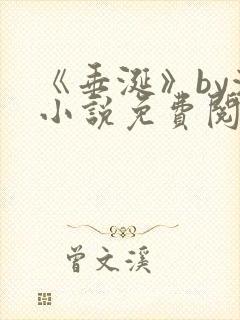 《垂涎》by
小說免費閱
曾文溪